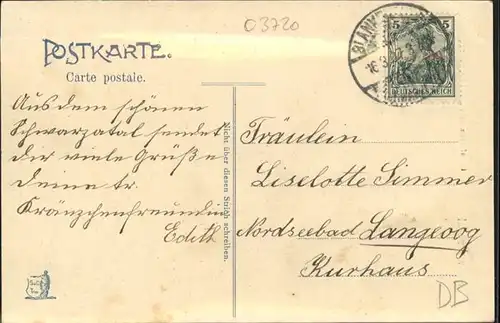 03720
POSTKARTE.
Carte postale.
5 5
DEUTSCHES REICH
Aus dem schönen
Schwarzatal sendet
Dir viele Grüße
Deine tr.
Kränzchenfreundin
Edith
Nicht über diesen Strich schreiben.
Fräulein
Liselotte Simmer
Nordseebad Langeoog
Kurhaus
DB